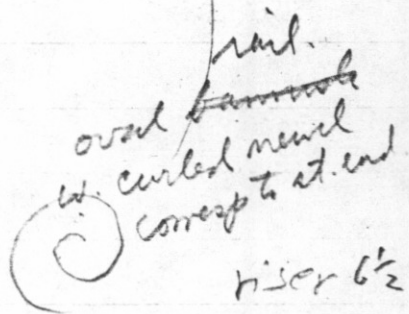 rail.
oval
w. curled newel
corresp to at. end
riser 6½